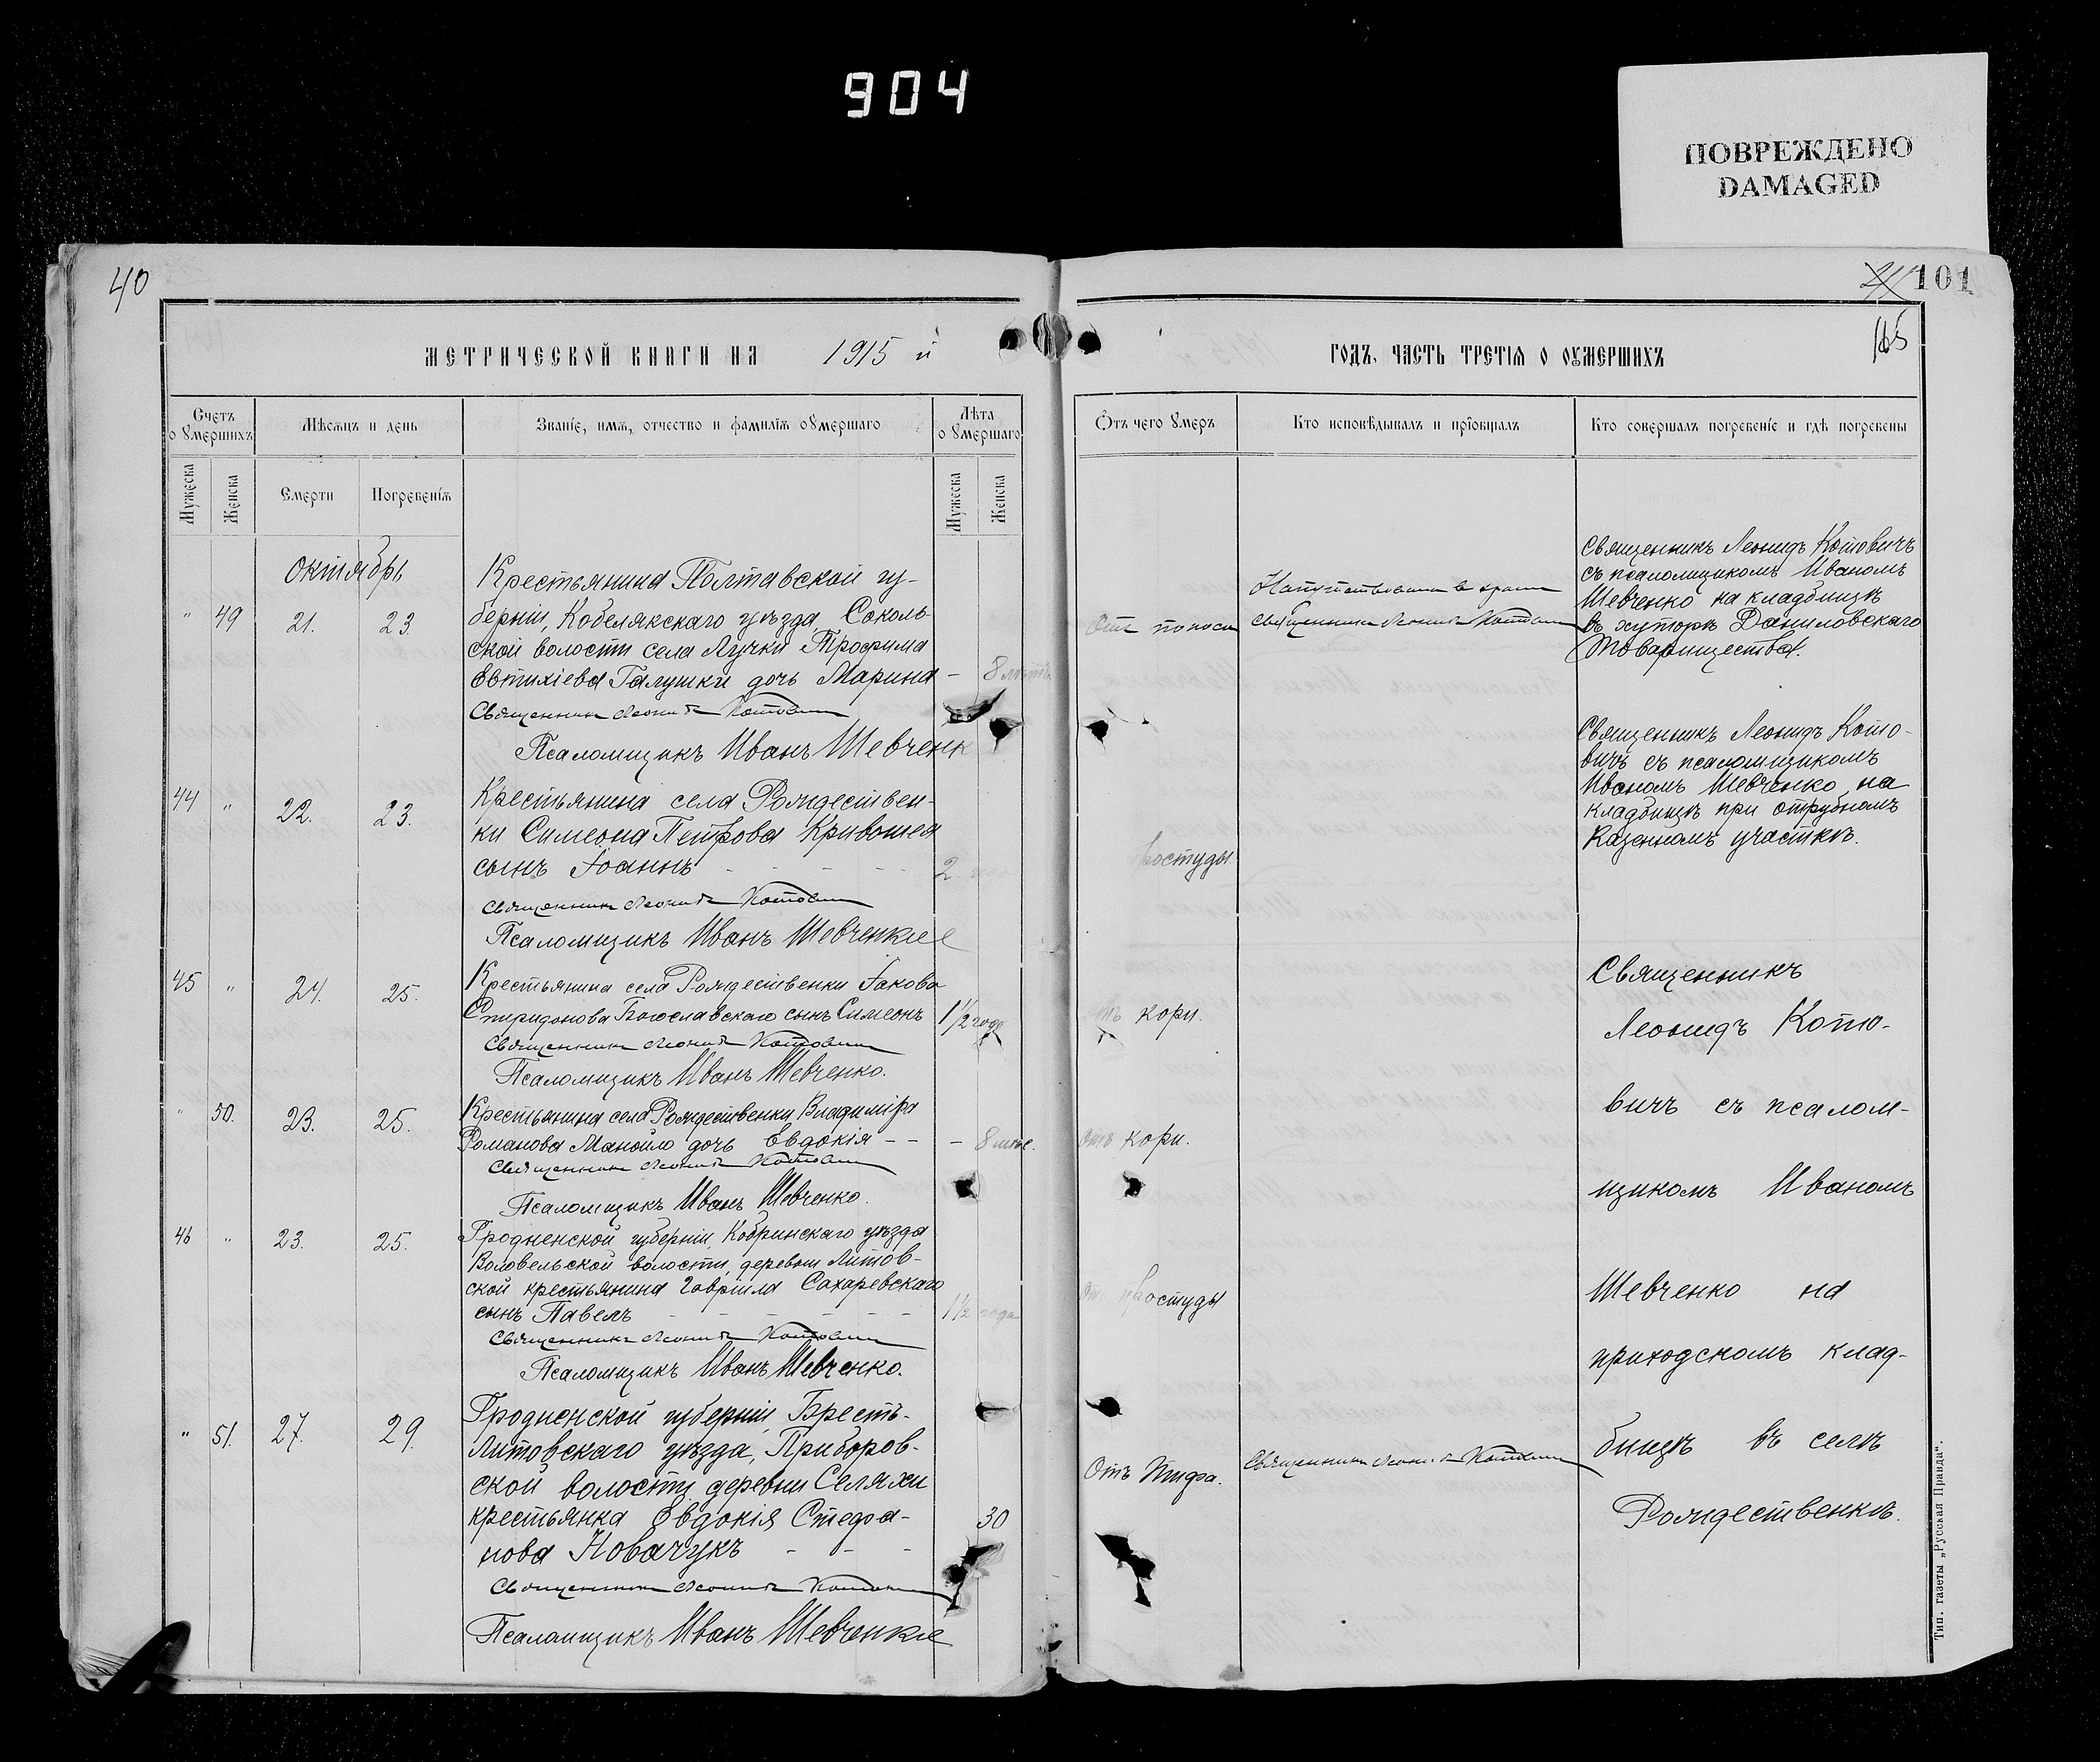 904
ПОВРЕЖДЕНО
DAMAGED
40
101
165
МЕТРИЧЕСКОЙ КНИГИ НА 1915 й
ГОДЪ, ЧАСТЬ ТРЕТІЯ О ОУМЕРШИХЪ
Счетъ о умершихъ
Мѣсяцъ и день
Званіе, имя, отчество и фамилія оумершаго
Лѣта о умершаго
Отъ чего умеръ
Кто исповѣдывалъ и пріобщалъ
Кто совершалъ погребеніе и гдѣ погребены
Мужеска
Женска
Смерти
Погребенія
Мужеска
Женска
Октябрь
" 49 21. 23.
Крестьянина Полтавской гу-
берніи, Кобелякскаго уѣзда, Соколь-
ской волости села Лучки Трофима
Евтихіева Галушки дочь Марина - 8
Священникъ Леонидъ Котовичъ
Псаломщикъ Иванъ Шевченк
Отъ поноса
священникъ Леонидъ Котовичъ
Священникъ Леонидъ Котовичъ
съ псаломщикомъ Иваномъ
Шевченко на кладбищѣ
въ хуторѣ Даниловскаго
Товарищества.
44 " 22. 23.
Крестьянина села Рождествен-
ки Симеона Петрова Кривошея
сынъ Іоаннъ - - - - 2
Священникъ Леонидъ Котовичъ
Псаломщикъ Иванъ Шевченко
простуды
Священникъ Леонидъ Кото-
вичъ съ псаломщикомъ
Иваномъ Шевченко, на
кладбищѣ при отрубномъ
Казенномъ участкѣ.
45 " 24. 25.
Крестьянина села Рождественки Іакова
Спиридонова Богославскаго сынъ Симеонъ 1½ года
Священникъ Леонидъ Котовичъ
Псаломщикъ Иванъ Шевченко.
отъ кори.
" 50. 23. 25.
Крестьянина села Рождественки Владиміра
Романова Манойло дочь Евдокія - - - 8 мѣс.
Священникъ Леонидъ Котовичъ
Псаломщикъ Иванъ Шевченко.
отъ кори.
46 " 23. 25.
Гродненской губерніи, Кобринскаго уѣзда
Воловельской волости, деревни Литов-
ской крестьянина Гавріила Сахаревскаго
сынъ Павелъ - - - - 1½ года
Священникъ Леонидъ Котовичъ
Псаломщикъ Иванъ Шевченко.
От простуды
" 51. 27. 29.
Гродненской губерніи, Брестъ-
Литовскаго уѣзда, Приборов-
ской волости деревни Селяхи
крестьянка Евдокія Стефа- 30
нова Новачукъ - - -
Священникъ Леонидъ Котовичъ
Псаломщикъ Иванъ Шевченко
Отъ Тифа.
Священникъ Леонидъ Котовичъ
Священникъ
Леонидъ Кото-
вичъ съ псалом-
щикомъ Иваномъ
Шевченко на
приходскомъ клад-
бищѣ въ селѣ
Рождественкѣ.
Тип. газеты „Русская Правда".